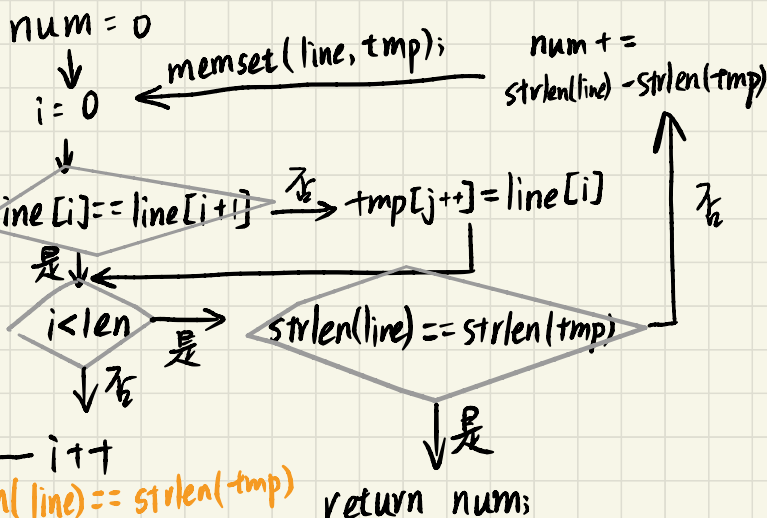 num = 0
memset(line, tmp);
num + =
strlen(line) - strlen(tmp)
i = 0
ine [i]== line[i+1]
否
tmp[j++] = line[i]
否
是
i<len
是
strlen(line) == strlen(tmp)
否
是
i++
n(line) == strlen(tmp)
return num;